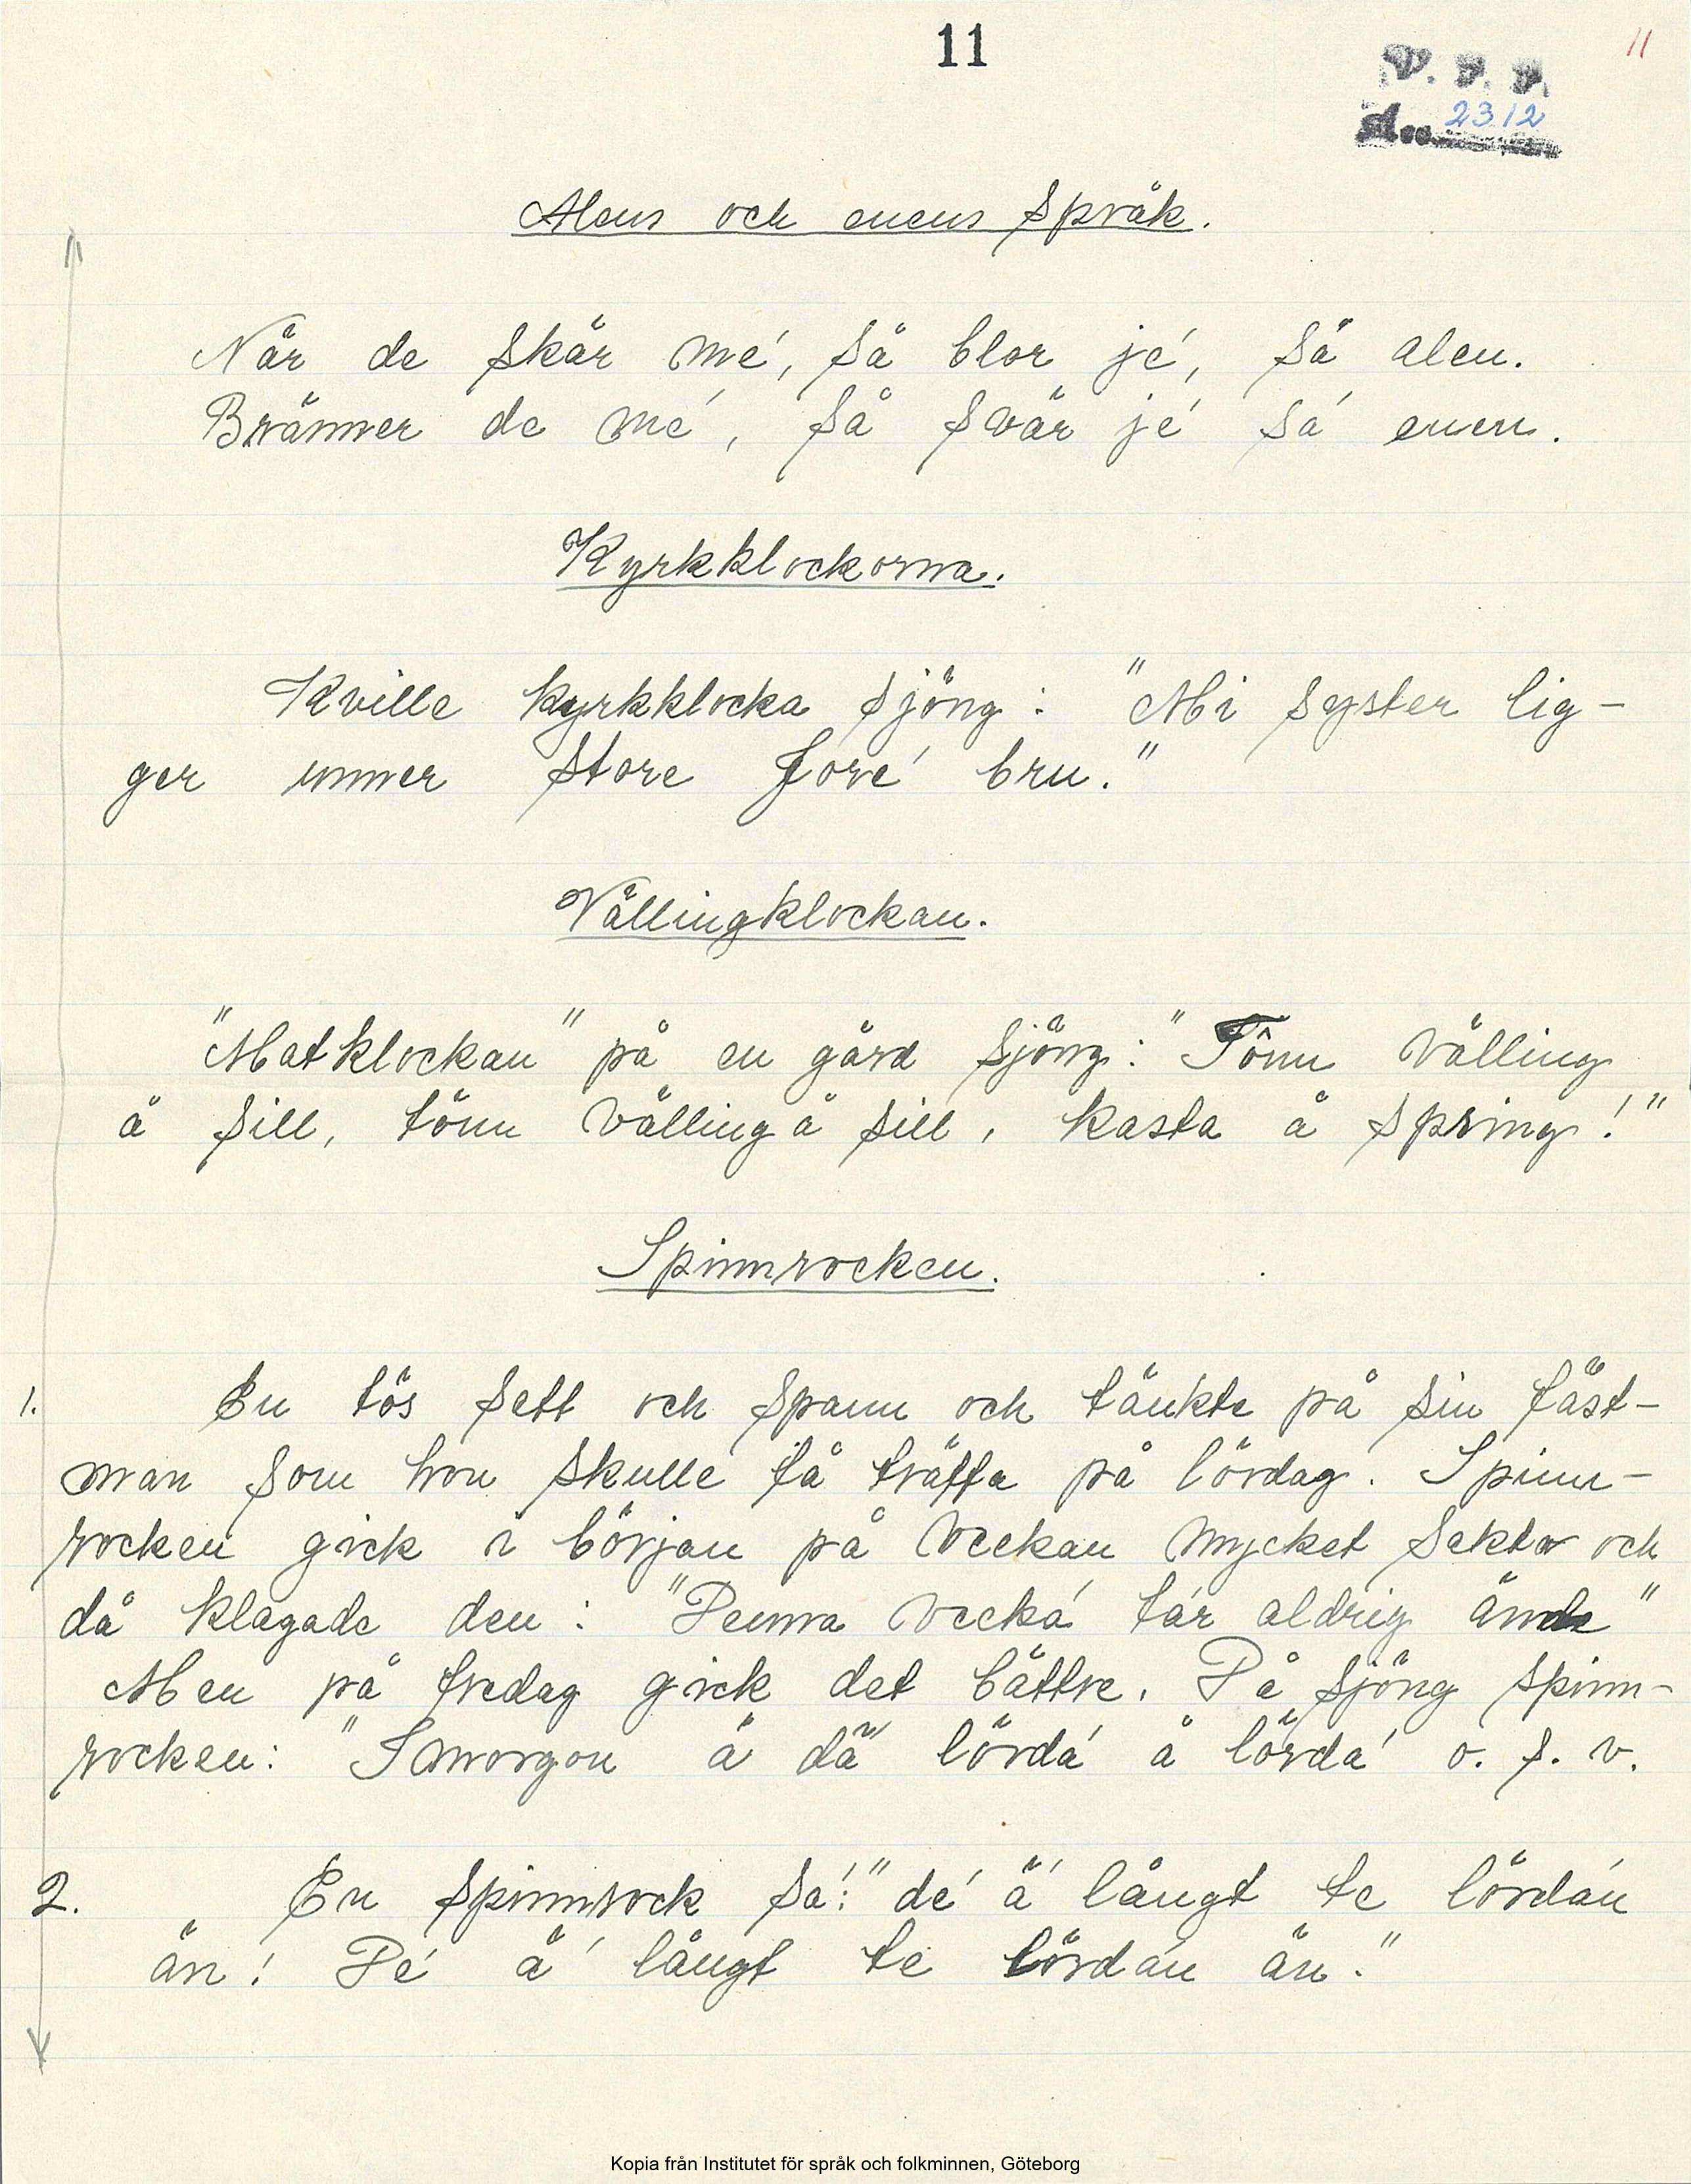 11
11
V. F. F.
2312
Alens och enens språk.
När de skär mé, så blor jé, så alen.
Bränner de mé, så svär jé sá enen.
Kyrkklockorna.
Kville kyrkklocka sjöng: "Mi syster lig-
ger unner store Foré bru."
Vällingklockan.
"Matklockan" på en gård sjöng: "Tönn välling
å sill, tönn välling å sill, kasta å spring!"
Spinnrocken.
1. En tös sett och spann och tänkte på sin fäst-
man som hon skulle få träffa på lördag. Spinn-
rocken gick i början på veckan mycket sakta och
då klagade den: "Denna vecká tár aldrig ände"
Men på fredag gick det bättre. Då sjöng spinn-
rocken: "I morgon ä dä lördá å lördá o. s. v.
2. En spinnrock sá: "dé ä långt te lördán
än! Dé ä långt te lördán än."
Kopia från Institutet för språk och folkminnen, Göteborg